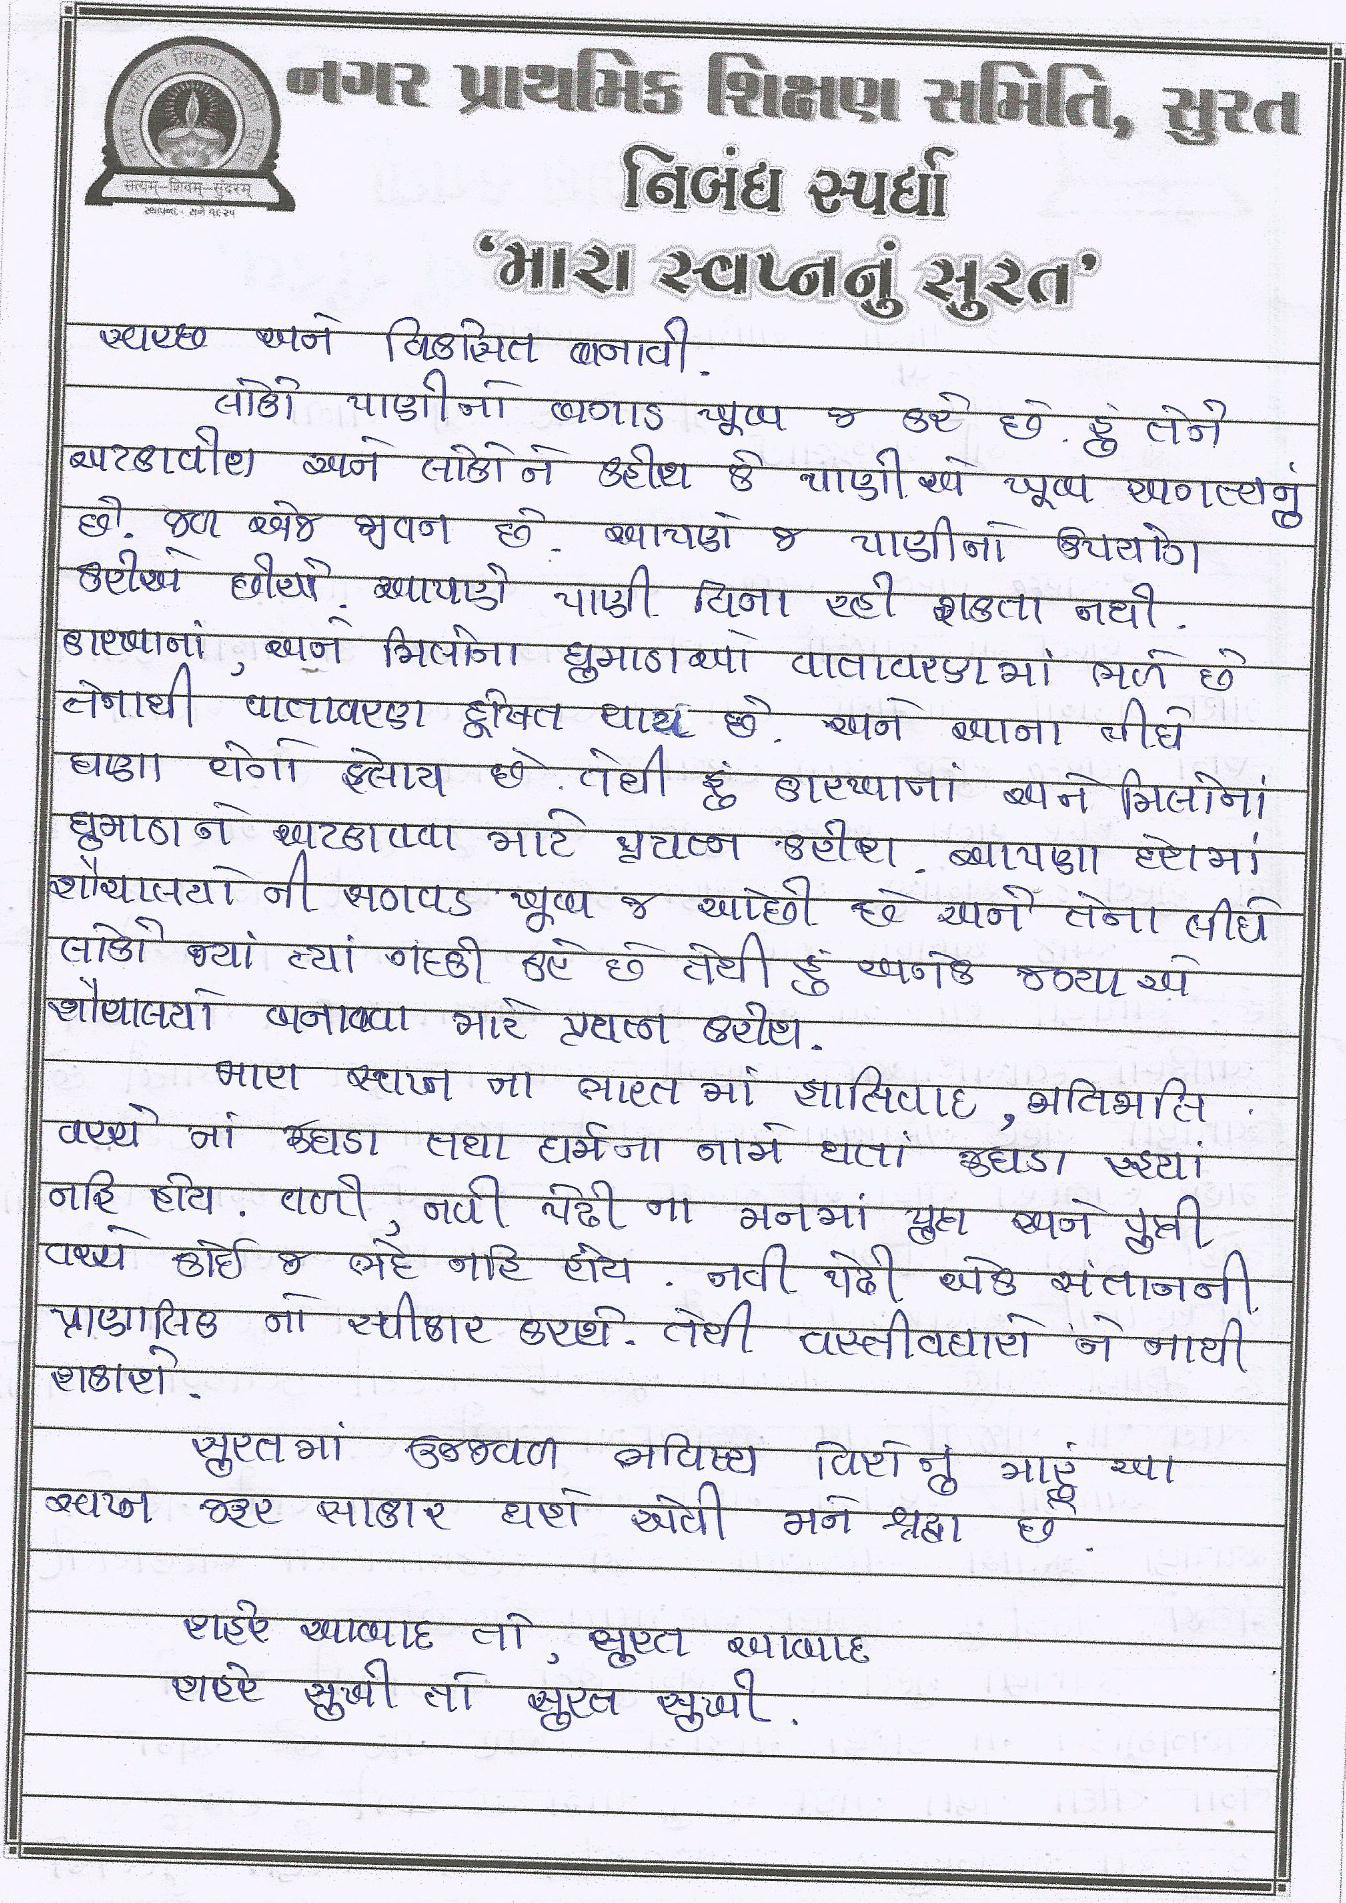 નગર પ્રાથમિક શિક્ષણ સમિતિ, સુરત
નગર પ્રાથમિક શિક્ષણ સમિતિ સુરત
સત્યમ્-શિવમ્-સુંદરમ્
સ્થાપના:- સને ૧૯૨૫
નિબંધ સ્પર્ધા
'મારા સ્વપ્નનું સુરત'
સ્વચ્છ અને વિકસિત બનાવી.
લોકો પાણીનો બગાડ ખૂબ જ કરે છે. હું તેને
અટકાવીશ અને લોકોને કહીશ કે પાણી એ ખૂબ અગત્યનું
છે. જળ એજ જીવન છે. આપણે જ પાણીનો ઉપયોગ
કરીએ છીએ. આપણે પાણી વિના રહી શકતા નથી.
કારખાનાં, અને મિલોના ધુમાડાઓ વાતાવરણમાં ભળે છે
તેનાથી વાતાવરણ દૂષિત થાય છે. અને આના લીધે
ઘણા રોગો ફેલાય છે. તેથી હું કારખાનાં અને મિલોનાં
ધુમાડાને અટકાવવા માટે પ્રયત્ન કરીશ. આપણા દેશમાં
શૌચાલયો ની સગવડ ખૂબ જ ઓછી છે અને તેના લીધે
લોકો જ્યાં ત્યાં ગંદકી કરે છે તેથી હું અનેક જગ્યાએ
શૌચાલયો બનાવવા માટે પ્રયત્ન કરીશ.
મારા સ્વપ્ન ના ભારત માં જ્ઞાતિવાદ,
વચ્ચે નાં ઝઘડા તથા ધર્મના નામે થતાં ઝઘડા
નહિ હોય. વળી, નવી પેઢી ના મનમાં પુત્ર અને પુત્રી
વચ્ચે કોઈ જ ભેદ નહિ હોય. નવી પેઢી એક સંતાનની
નો સ્વીકાર કરશે. તેથી વસ્તીવધારો ને નાથી
શકાશે.
સુરતમાં ઉજ્જવળ ભવિષ્ય વિશેનું મારું આ
સ્વપ્ન જરૂર સાકાર થશે એવી મને શ્રદ્ધા છે.
શહેર આબાદ તો, સુરત આબાદ
શહેર સુખી તો સુરત સુખી.